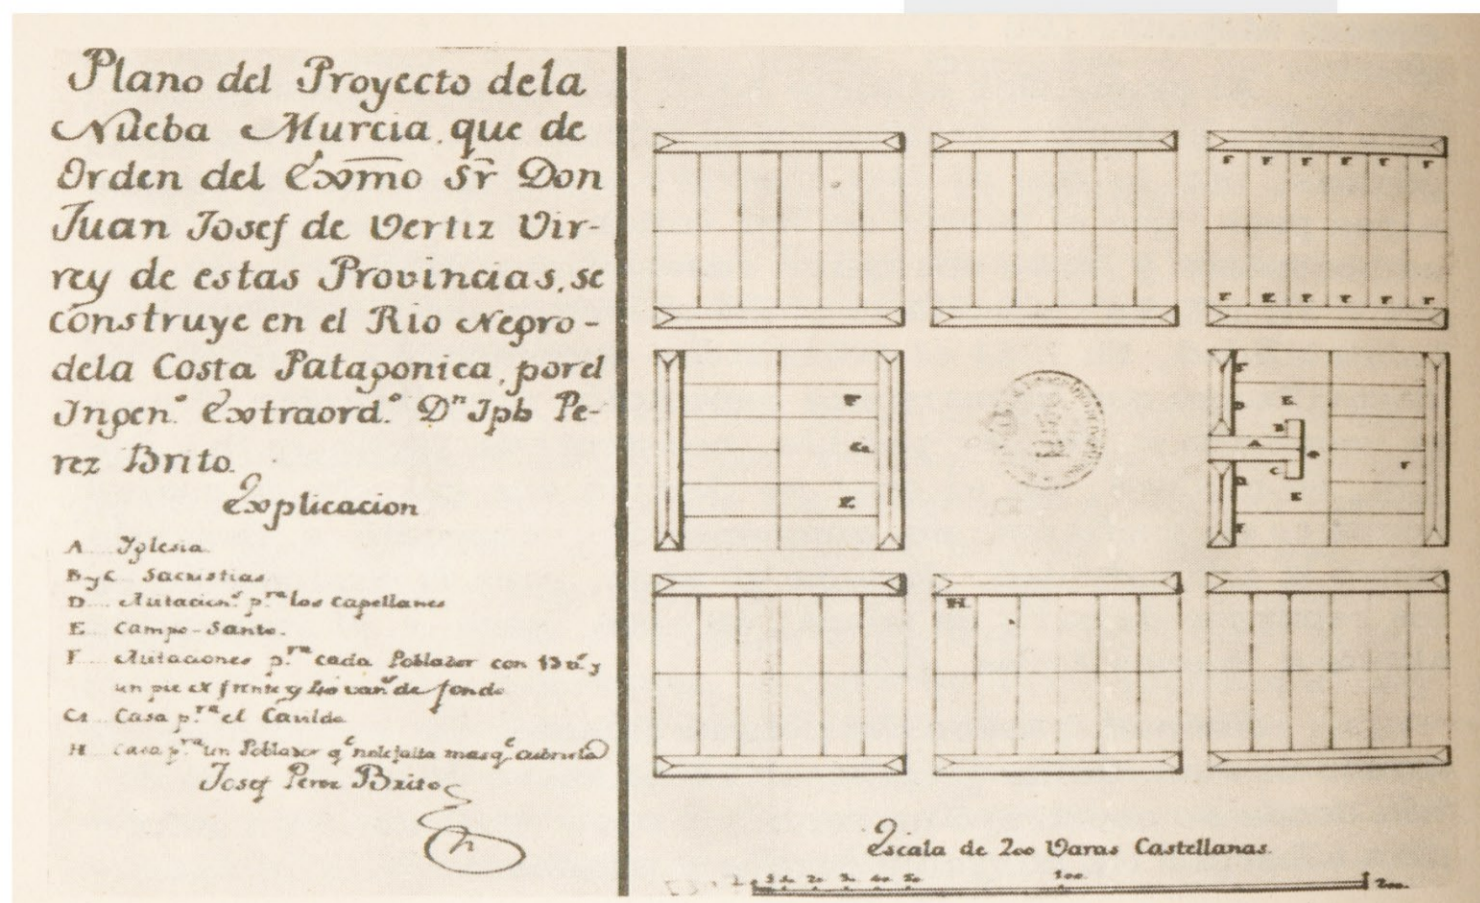 Plano del Proyecto dela
Nueba Murcia, que de
Orden del Exmo Sr Don
Juan Josef de Vertiz Vir-
rey de estas Provincias, se
construye en el Rio Negro-
dela Costa Patagonica, por el
Ingen.º Extraord.º Dn Jph Pe-
rez Brito.
Explicacion
A Iglesia
B y C Sacristias
D p.ra los Capellanes
E Campo-Santo.
F p.ra cada Poblador con 13 v.s y
un pie de frente y 40 var.s de fondo
G Casa p.ra el Cavildo
H Casa p.ra un Poblador q.e nole falta mas q.e cubrirla
Josef Perez Brito
F F F F F F
F F F F F F
F
G
F
F
D E
B
A
C
D E
F
F
H
Escala de 200 Varas Castellanas.
100 200